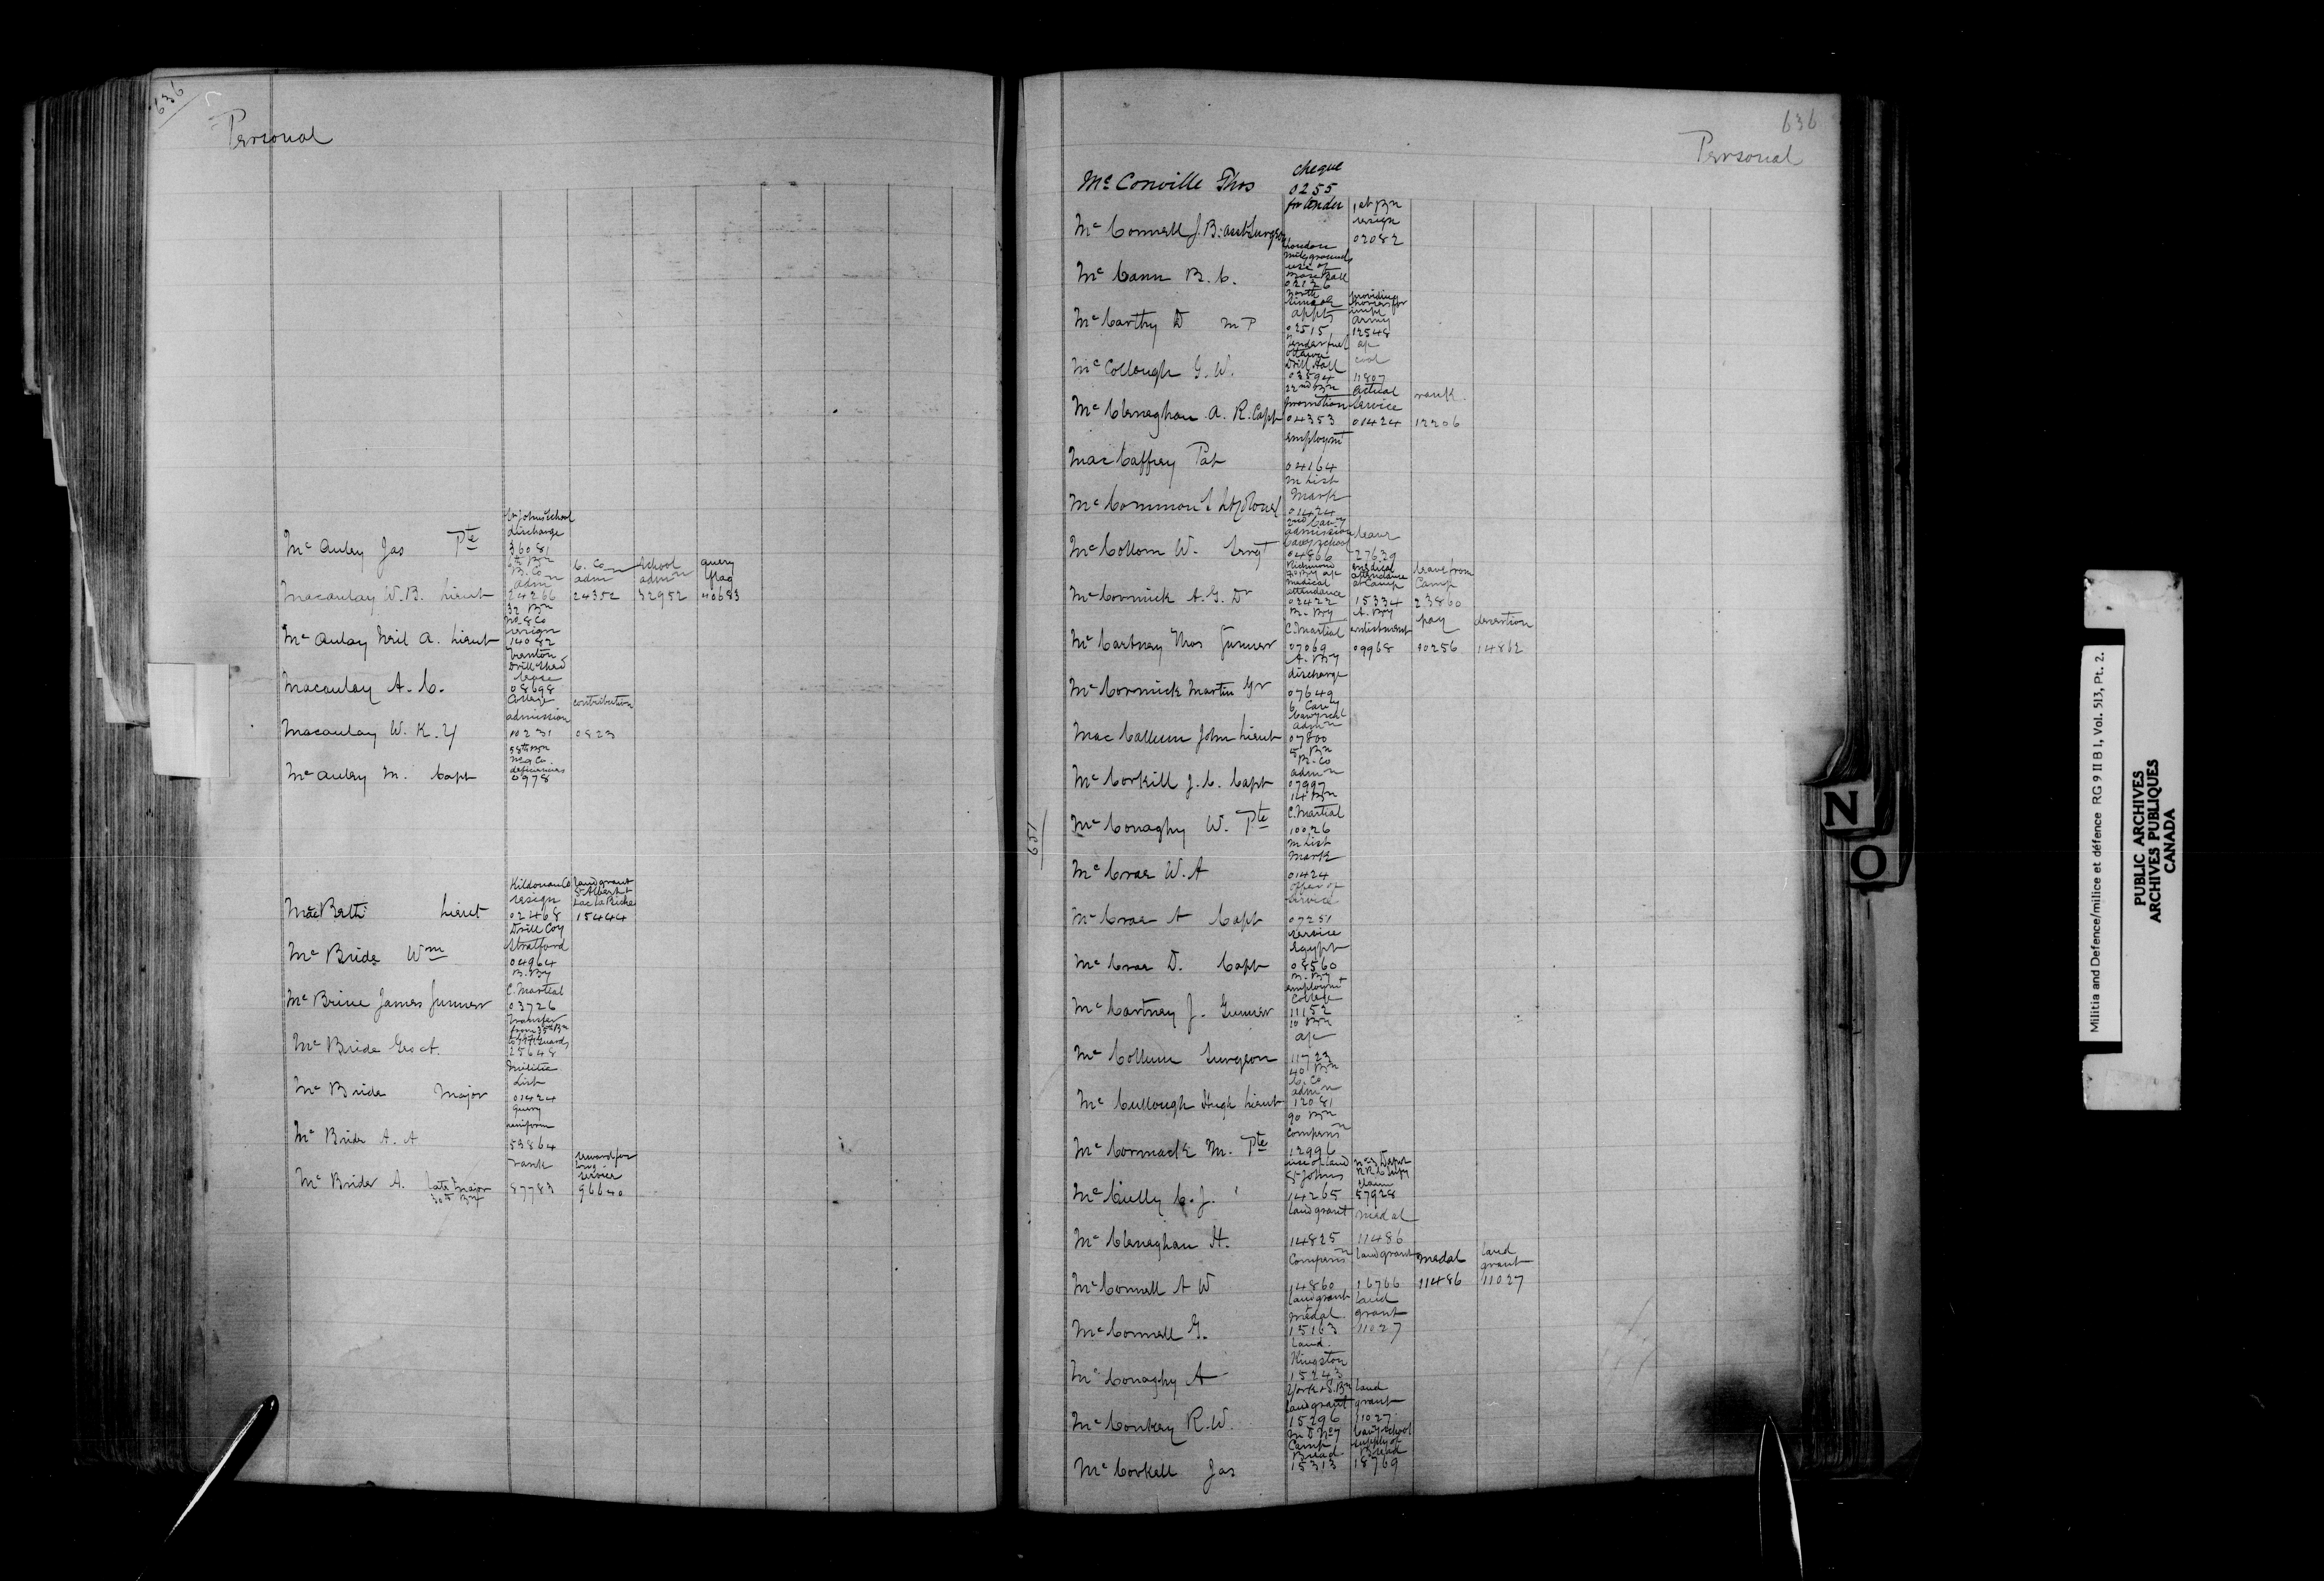 636
Personal
St Johns School
discharge
McAuley Jas Pte 36081
B. Co C. Co School query
admn admn admn
Macaulay W.B. Lieut 24266 24352 32952 40683
32 Bn
No 8 Co
resign
McAulay Neil A. Lieut 14082
Trenton
Drill Shed
lease
Macaulay A. C. 08698
College
admission contribution
Macaulay W. K. 10231 0823
58th Bn
No 9 Co
deficiencies
McAuley M. Capt 0978
Kildonan Co land grant
resign St Albert +
Lac La Biche
MacBeth Lieut 02468 15444
Drill Coy
Stratford
McBride Wm 04964
B. By
C. Martial
McBrine James Gunner 03726
Transfer
from 35th Bn
McBride Geo A. 25648
Militia
List
McBride Major 01424
Query
uniform
McBride A. A 53864
rank reward for
long
service
McBride A. late Major 87783 96640
30th Bn
636
Personal
cheque
McConville Thos 0255
for tender 1st Bn
resign
McConnell J. B. Asst Surgeon 02082
London
use of
Base Ball
McCann B. C. 02126
North
Simcoe providing
appts horses for
Army
McCarthy D MP 02515 12548
Tender fuel a/c
Ottawa coal
Drill Hall
McCollough G. W. 03594 11807
22nd Bn actual rank
promotion service
McCleneghan A. R. Capt 04353 01424 12206
employmt
MacCaffrey Pat 04164
M List
Mark
McCommon 01424
2nd Cavy
admission leave
Cavy School
McCollom W. Sergt 04866 27639
Richmond medical leave from
attendance Camp
medical at Camp
attendance
McCormick A. G. Dr 02422 15334 23860
B. By A. By pay desertion
C. Martial enlistment
McCartney Thos Gunner 07069 09968 10256 14862
A. By
discharge
McCormick Martin Gr 07649
6 Cavy
Cavy Schl
admn
MacCallum John Lieut 07800
5 Bn
B. Co
admn
McCorkill J. C. Capt 07997
14 Bn
C. Martial
McConaghy W. Pte 10026
M List
Mark
McCrae W. A 01424
offer of
service
McCrae A Capt 07251
service
Egypt
McCrae D. Capt 08560
B. By
employmt
College
McCartney J. Gunner 11152
10 Bn
a/c
McCollum Surgeon 11723
40 Bn
C. Co
admn
McCullough Hugh Lieut 12081
90 Bn
Compensn
McCormack M. Pte 12996
use of land
St Johns claim
McCully C. J. 14265 57928
land grant medal
McCleneghan H. 14825 11486
Compensn land grant medal land
grant
McConnell A W 14860 16766 11486 11027
land grant land
medal grant
McConnell G. 15163 11027
land
Kingston
McConaghy A 15243
York + S. Bn land
land grant grant
McConkey R. W. 15296 11027
M D No 7 Cavy School
Camp supply of
Bread Bread
McCorkell Jas 15313 18769
637
N
O
Militia and Defence/milice et défence RG 9 II B 1, Vol. 513, Pt. 2.
PUBLIC ARCHIVES
ARCHIVES PUBLIQUES
CANADA